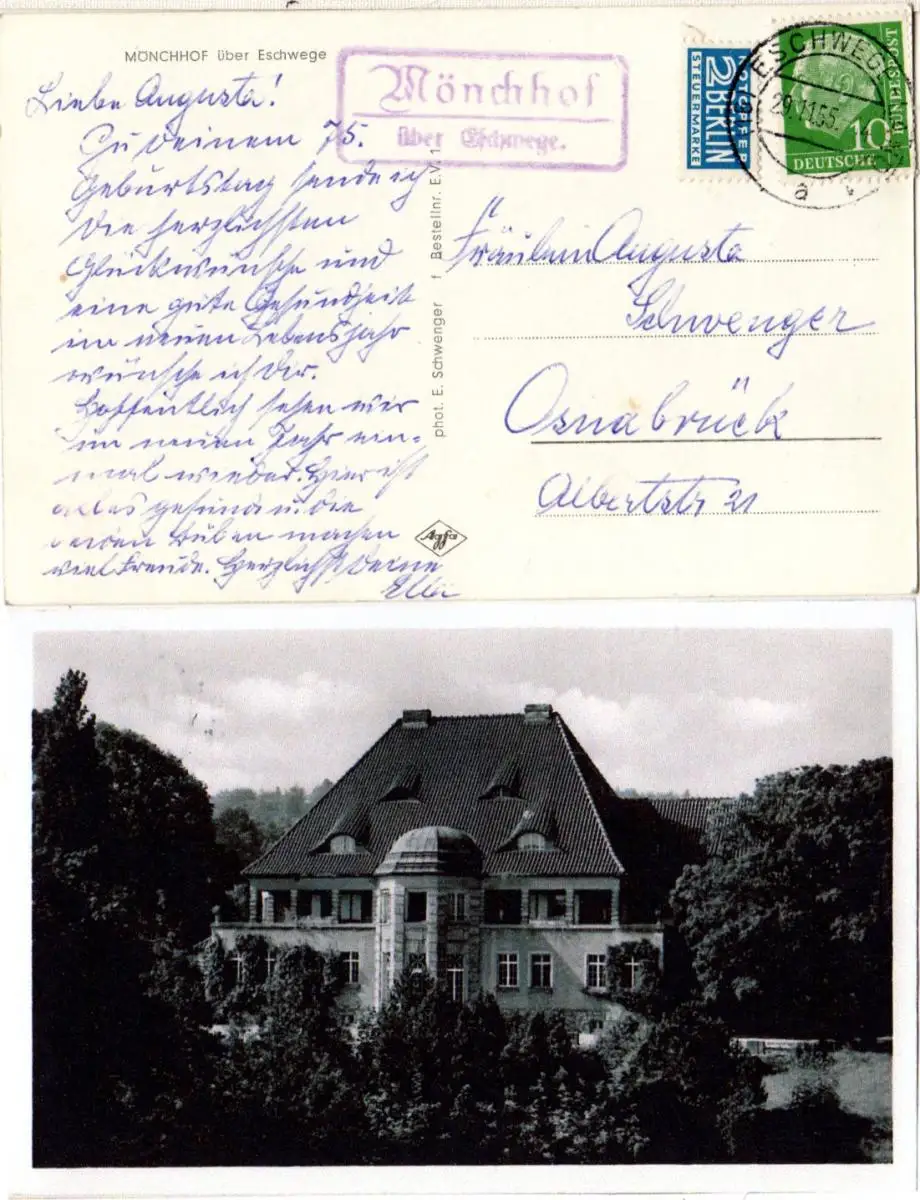 MÖNCHHOF über Eschwege
Mönchhof
über Eschwege.
NOTOPFER
2 BERLIN
STEUERMARKE
ESCHWEGE
29.11.55.
a
10
DEUTSCHE
BUNDESPOST
Liebe Augusta!
Zu deinem 75.
Geburtstag sende ich
die herzlichsten
Glückwünsche und
eine gute Gesundheit
im neuen Lebensjahr
wünsche ich dir.
Hoffentlich sehen wir
im neuen Jahr ein-
mal wieder. Hier ist
alles gesund u. die
beiden Buben machen
viel Freude. Herzlichst Deine
Ella
phot. E. Schwenger f Bestellnr. E.V.
Agfa
Fräulein Augusta
Schwenger
Osnabrück
Albertstr 21